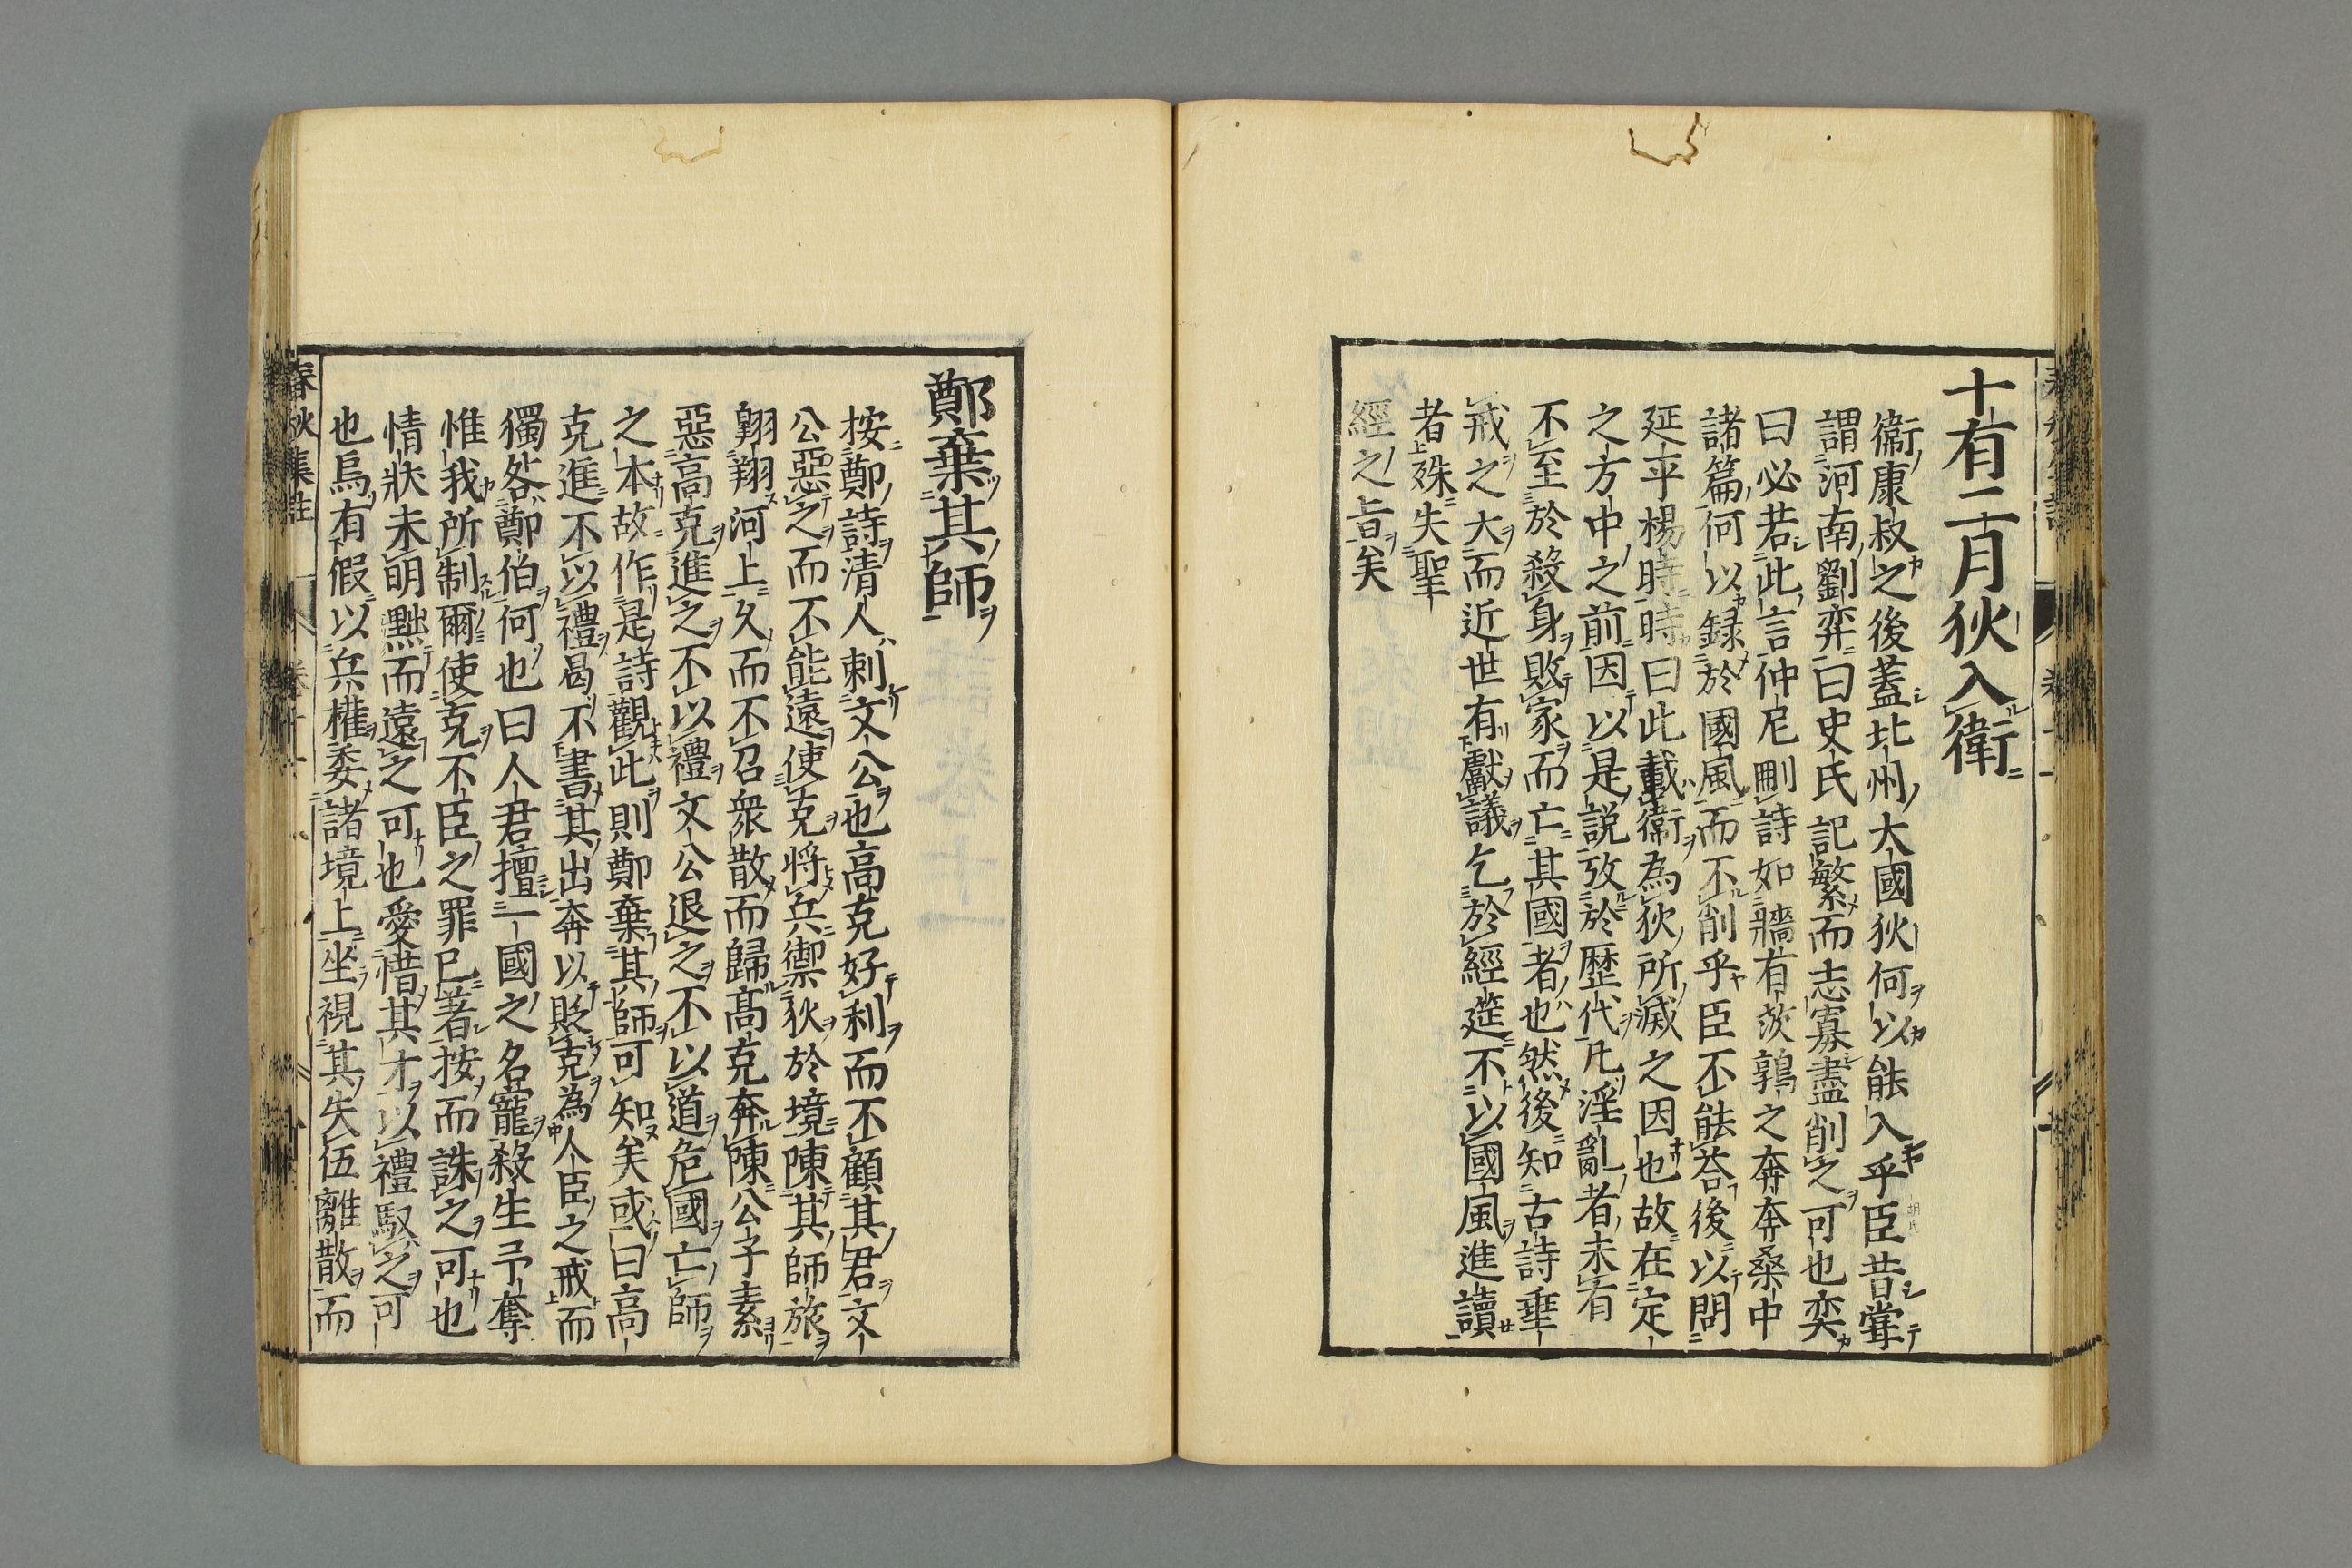 十有二月狄入衛
衞康叔之後蓋北州大國狄何以能入乎臣昔嘗
謂河南劉弈曰史氏記繁而志寡盡削之可也奕
曰必若此言仲尼刪詩如牆有茨鶉之奔奔桑中
諸篇何以録於國風而不削乎臣不能荅後以問
延平楊時時曰此載衞為狄所滅之因也故在定
之方中之前因以是說攷於歷代凡淫亂者未有
不至於殺身敗家而亡其國者也然後知古詩垂
戒之大而近世有獻議乞於經筵不以國風進讀
者殊失聖
經之旨矣
鄭棄其師
按鄭詩清人刺文公也高克好利而不顧其君文
公惡之而不能遠使克將兵禦狄於境陳其師旅
翱翔河上久而不召衆散而歸高克奔陳公子素
惡高克進之不以禮文公退之不以道危國亡師
之本故作是詩觀此則鄭棄其師可知矣或曰高
克進不以禮曷不書其出奔以貶克為人臣之戒而
獨咎鄭伯何也曰人君擅一國之名寵殺生予奪
惟我所制爾使克不臣之罪已著按而誅之可也
情狀未明黜而遠之可也愛惜其才以禮馭之可
也烏有假以兵權委諸境上坐視其失伍離散而
春秋集註 卷十一